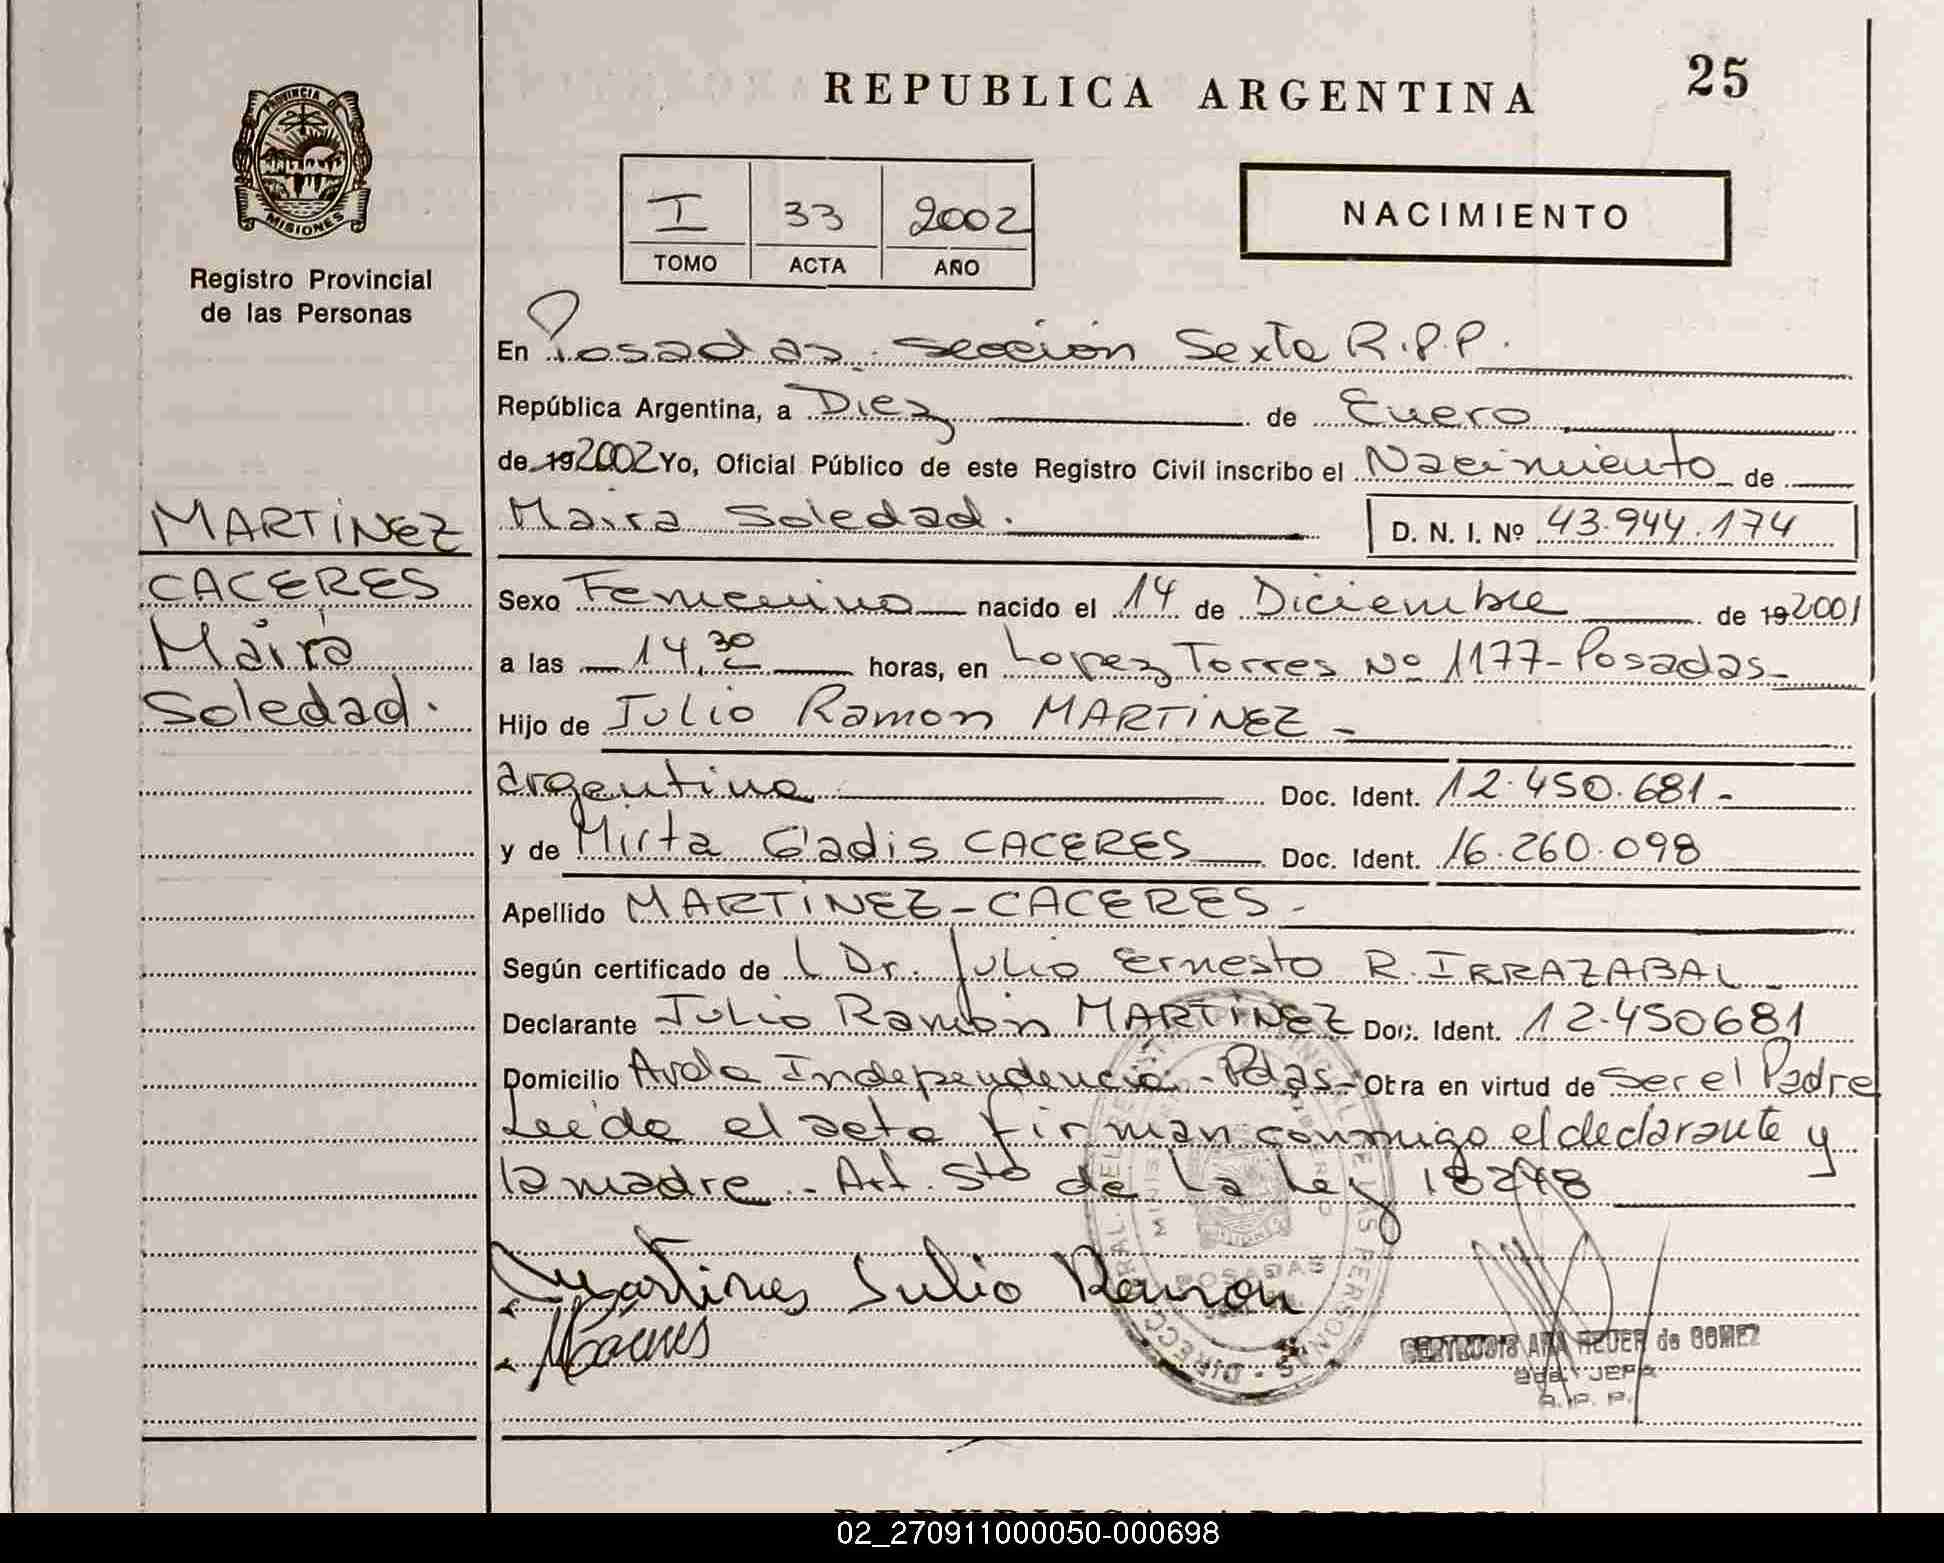 REPUBLICA ARGENTINA
25
PROVINCIA DE
MISIONES
Registro Provincial
de las Personas
I 33 2002
TOMO ACTA AÑO
NACIMIENTO
En Posadas sección Sexta R.P.P.
República Argentina, a Diez de Enero
de 192002 Yo, Oficial Público de este Registro Civil inscribo el Nacimiento de
Maira Soledad. D. N. I. Nº 43.944.174
MARTINEZ
CACERES
Maira
Soledad.
Sexo Femenino nacido el 14 de Diciembre de 192001
a las 14,30 horas, en Lopez Torres Nº 1177-Posadas-
Hijo de Julio Ramon MARTINEZ -
argentino Doc. Ident. 12.450.681-
y de Mirta Gladis CACERES Doc. Ident. 16.260.098
Apellido MARTINEZ-CACERES.-
Según certificado de Dr. Julio Ernesto R. IRRAZABAL
Declarante Julio Ramón MARTINEZ Doc. Ident. 12.450681
Domicilio Avda Independencia - Pdas- Obra en virtud de ser el Padre
Leída el acta firman conmigo el declarante y
la madre.- Art. 5to de la Ley 18248
Martines Julio Ramon
MCaceres
POSADAS
GERTRUDIS ANA HEUER de GOMEZ
2da. JEFA
R. P. P.
02_270911000050-000698